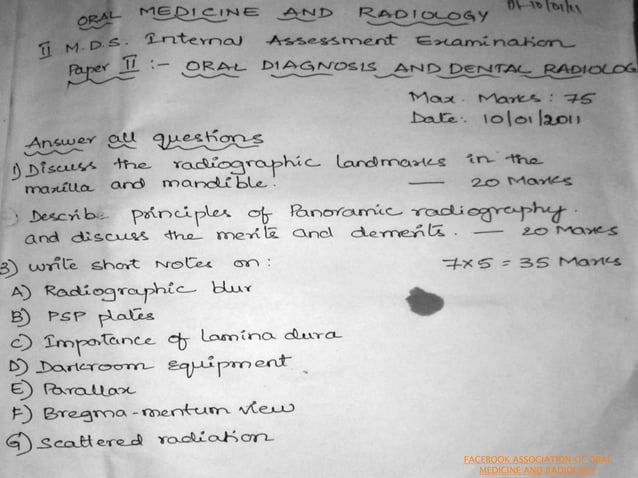 ORAL MEDICINE AND RADIOLOGY
Dt-10/01/11
II M.D.S. Internal Assessment Examination
Paper II :- ORAL DIAGNOSIS AND DENTAL RADIOLOG
Max. Marks: 75
Date: 10/01/2011
Answer all questions
1) Discuss the radiographic landmarks in the
maxilla and mandible. — 20 Marks
) Describe principles of Panoramic radiography.
and discuss the merits and demerits. — 20 Marks
3) write short Notes on: 7x5 = 35 Marks
A) Radiographic blur
B) PSP plates
C) Importance of Lamina dura
D) Darkroom Equipment
E) Parallax
F) Bregma-mentum view
G) Scattered radiation
FACEBOOK ASSOCIATION OF ORAL
MEDICINE AND RADIOLOGY